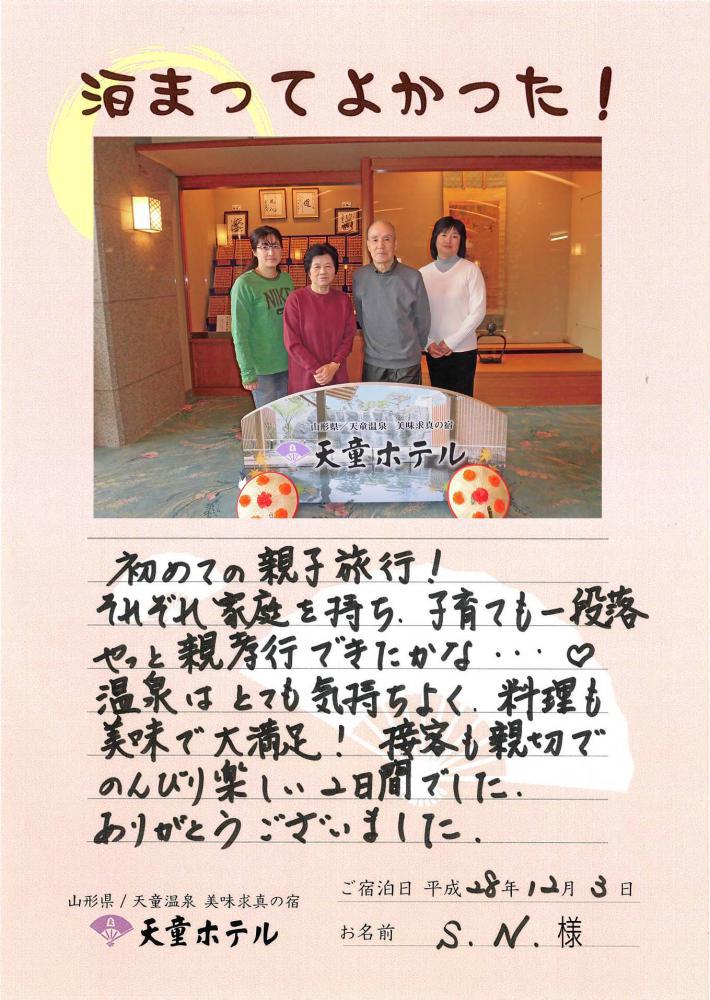 泊まってよかった！
NIKE
山形県／天童温泉 美味求真の宿
天童ホテル
初めての親子旅行！
それぞれ家庭を持ち、子育ても一段落
やっと親孝行できたかな・・・♡
温泉はとても気持ちよく、料理も
美味で大満足！ 接客も親切で
のんびり楽しい2日間でした。
ありがとうございました。
ご宿泊日 平成28年12月3日
山形県／天童温泉 美味求真の宿
天童ホテル
お名前 S.N.様